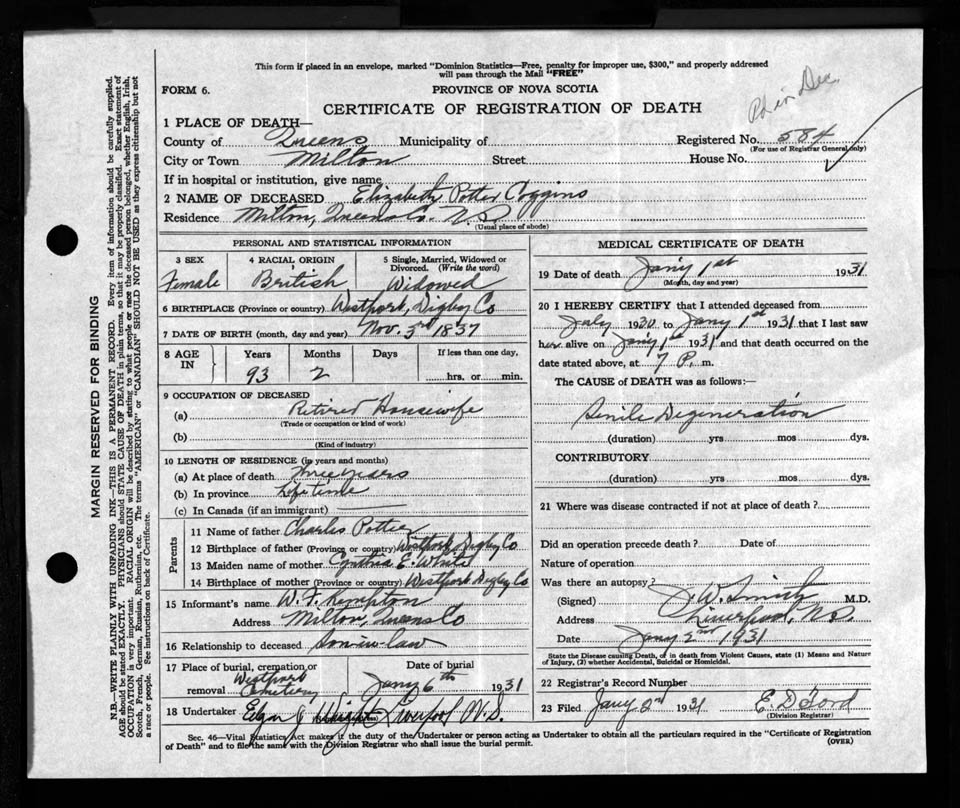 This form if placed in an envelope, marked "Dominion Statistics—Free, penalty for improper use, $300," and properly addressed
will pass through the Mail "FREE"
FORM 6.
PROVINCE OF NOVA SCOTIA
CERTIFICATE OF REGISTRATION OF DEATH
1 PLACE OF DEATH—
County of Queens Municipality of Registered No. 584
(For use of Registrar General only)
City or Town Milton Street House No.
If in hospital or institution, give name
2 NAME OF DECEASED Elizabeth Potter Coggins
Residence Milton, Queens Co. N.S.
(Usual place of abode)
PERSONAL AND STATISTICAL INFORMATION
3 SEX 4 RACIAL ORIGIN 5 Single, Married, Widowed or
Divorced. (Write the word)
Female British Widowed
6 BIRTHPLACE (Province or country) Westport, Digby Co
7 DATE OF BIRTH (month, day and year) Nov. 3rd 1837
8 AGE IN Years Months Days If less than one day,
93 2 hrs. or min.
9 OCCUPATION OF DECEASED
(a) Retired Housewife
(Trade or occupation or kind of work)
(b)
(Kind of industry)
10 LENGTH OF RESIDENCE (in years and months)
(a) At place of death Three years
(b) In province Lifetime
(c) In Canada (if an immigrant)
Parents
11 Name of father Charles Potter
12 Birthplace of father (Province or country) Westport Digby Co
13 Maiden name of mother Cynthia E. White
14 Birthplace of mother (Province or country) Westport Digby Co
15 Informant's name W. F. Kempton
Address Milton, Queens Co
16 Relationship to deceased Son-in-law
17 Place of burial, cremation or removal Westport Cemetery
Date of burial
Jany 6th 1931
18 Undertaker Edgar J Wright Liverpool N.S.
MEDICAL CERTIFICATE OF DEATH
19 Date of death Jan'y 1st 1931
(Month, day and year)
20 I HEREBY CERTIFY that I attended deceased from
July 1920 to Jany 1st 1931 that I last saw
her alive on Jan'y 1st 1931 and that death occurred on the
date stated above, at 7 P. m.
The CAUSE of DEATH was as follows:—
Senile Degeneration
(duration) yrs mos dys.
CONTRIBUTORY
(duration) yrs. mos dys.
21 Where was disease contracted if not at place of death?
Did an operation precede death? Date of
Nature of operation
Was there an autopsy?
(Signed) J. W. Smith M.D.
Address Liverpool, N.S.
Date Jany 2nd 1931
State the Disease causing Death, or in death from Violent Causes, state (1) Means and Nature
of Injury, (2) whether Accidental, Suicidal or Homicidal.
22 Registrar's Record Number
23 Filed Jany 2nd 1931 E. D. Ford
(Division Registrar)
Sec. 46—Vital Statistics Act makes it the duty of the Undertaker or person acting as Undertaker to obtain all the particulars required in the "Certificate of Registration
of Death" and to file the same with the Division Registrar who shall issue the burial permit.
(OVER)
MARGIN RESERVED FOR BINDING
N.B.—WRITE PLAINLY WITH UNFADING INK—THIS IS A PERMANENT RECORD. Every item of information should be carefully supplied.
AGE should be stated EXACTLY. PHYSICIANS should STATE CAUSE OF DEATH in plain terms, so that it may be properly classified. Exact statement of
OCCUPATION is very important. RACIAL ORIGIN will be described by stating to what people or race the deceased person belonged, whether English, Irish,
Scotch, French, German, Russian, Ruthenian, etc. The terms "AMERICAN" or "CANADIAN" SHOULD NOT BE USED as they express citizenship but not
a race or people. See instructions on back of Certificate.